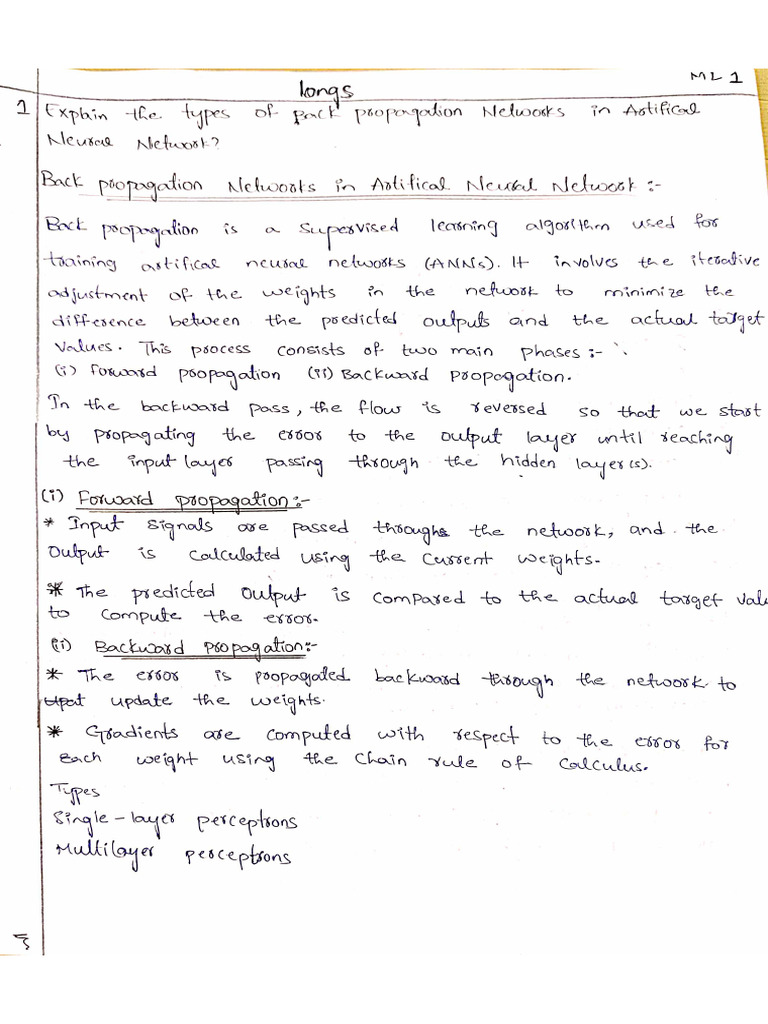 ML 1
longs
1 Explain the types of Back propagation Networks in Artifical
Neural Network?
Back propagation Networks in Artifical Neural Network :-
Back propagation is a supervised learning algorithm used for
training artifical neural networks (ANNs). It involves the iterative
adjustment of the weights in the network to minimize the
difference between the predicted outputs and the actual target
values. This process consists of two main phases :-
(i) forward propagation (ii) Backward propagation.
In the backward pass, the flow is reversed so that we start
by propagating the error to the output layer until reaching
the input layer passing through the hidden layer(s).
(i) Forward propagation :-
* Input signals are passed through the network, and the
output is calculated using the current weights.
* The predicted output is compared to the actual target valu
to compute the error.
(ii) Backward propagation :-
* The error is propagated backward through the network to
update the weights.
* Gradients are computed with respect to the error for
each weight using the chain rule of calculus.
Types
Single-layer perceptrons
Multilayer perceptrons